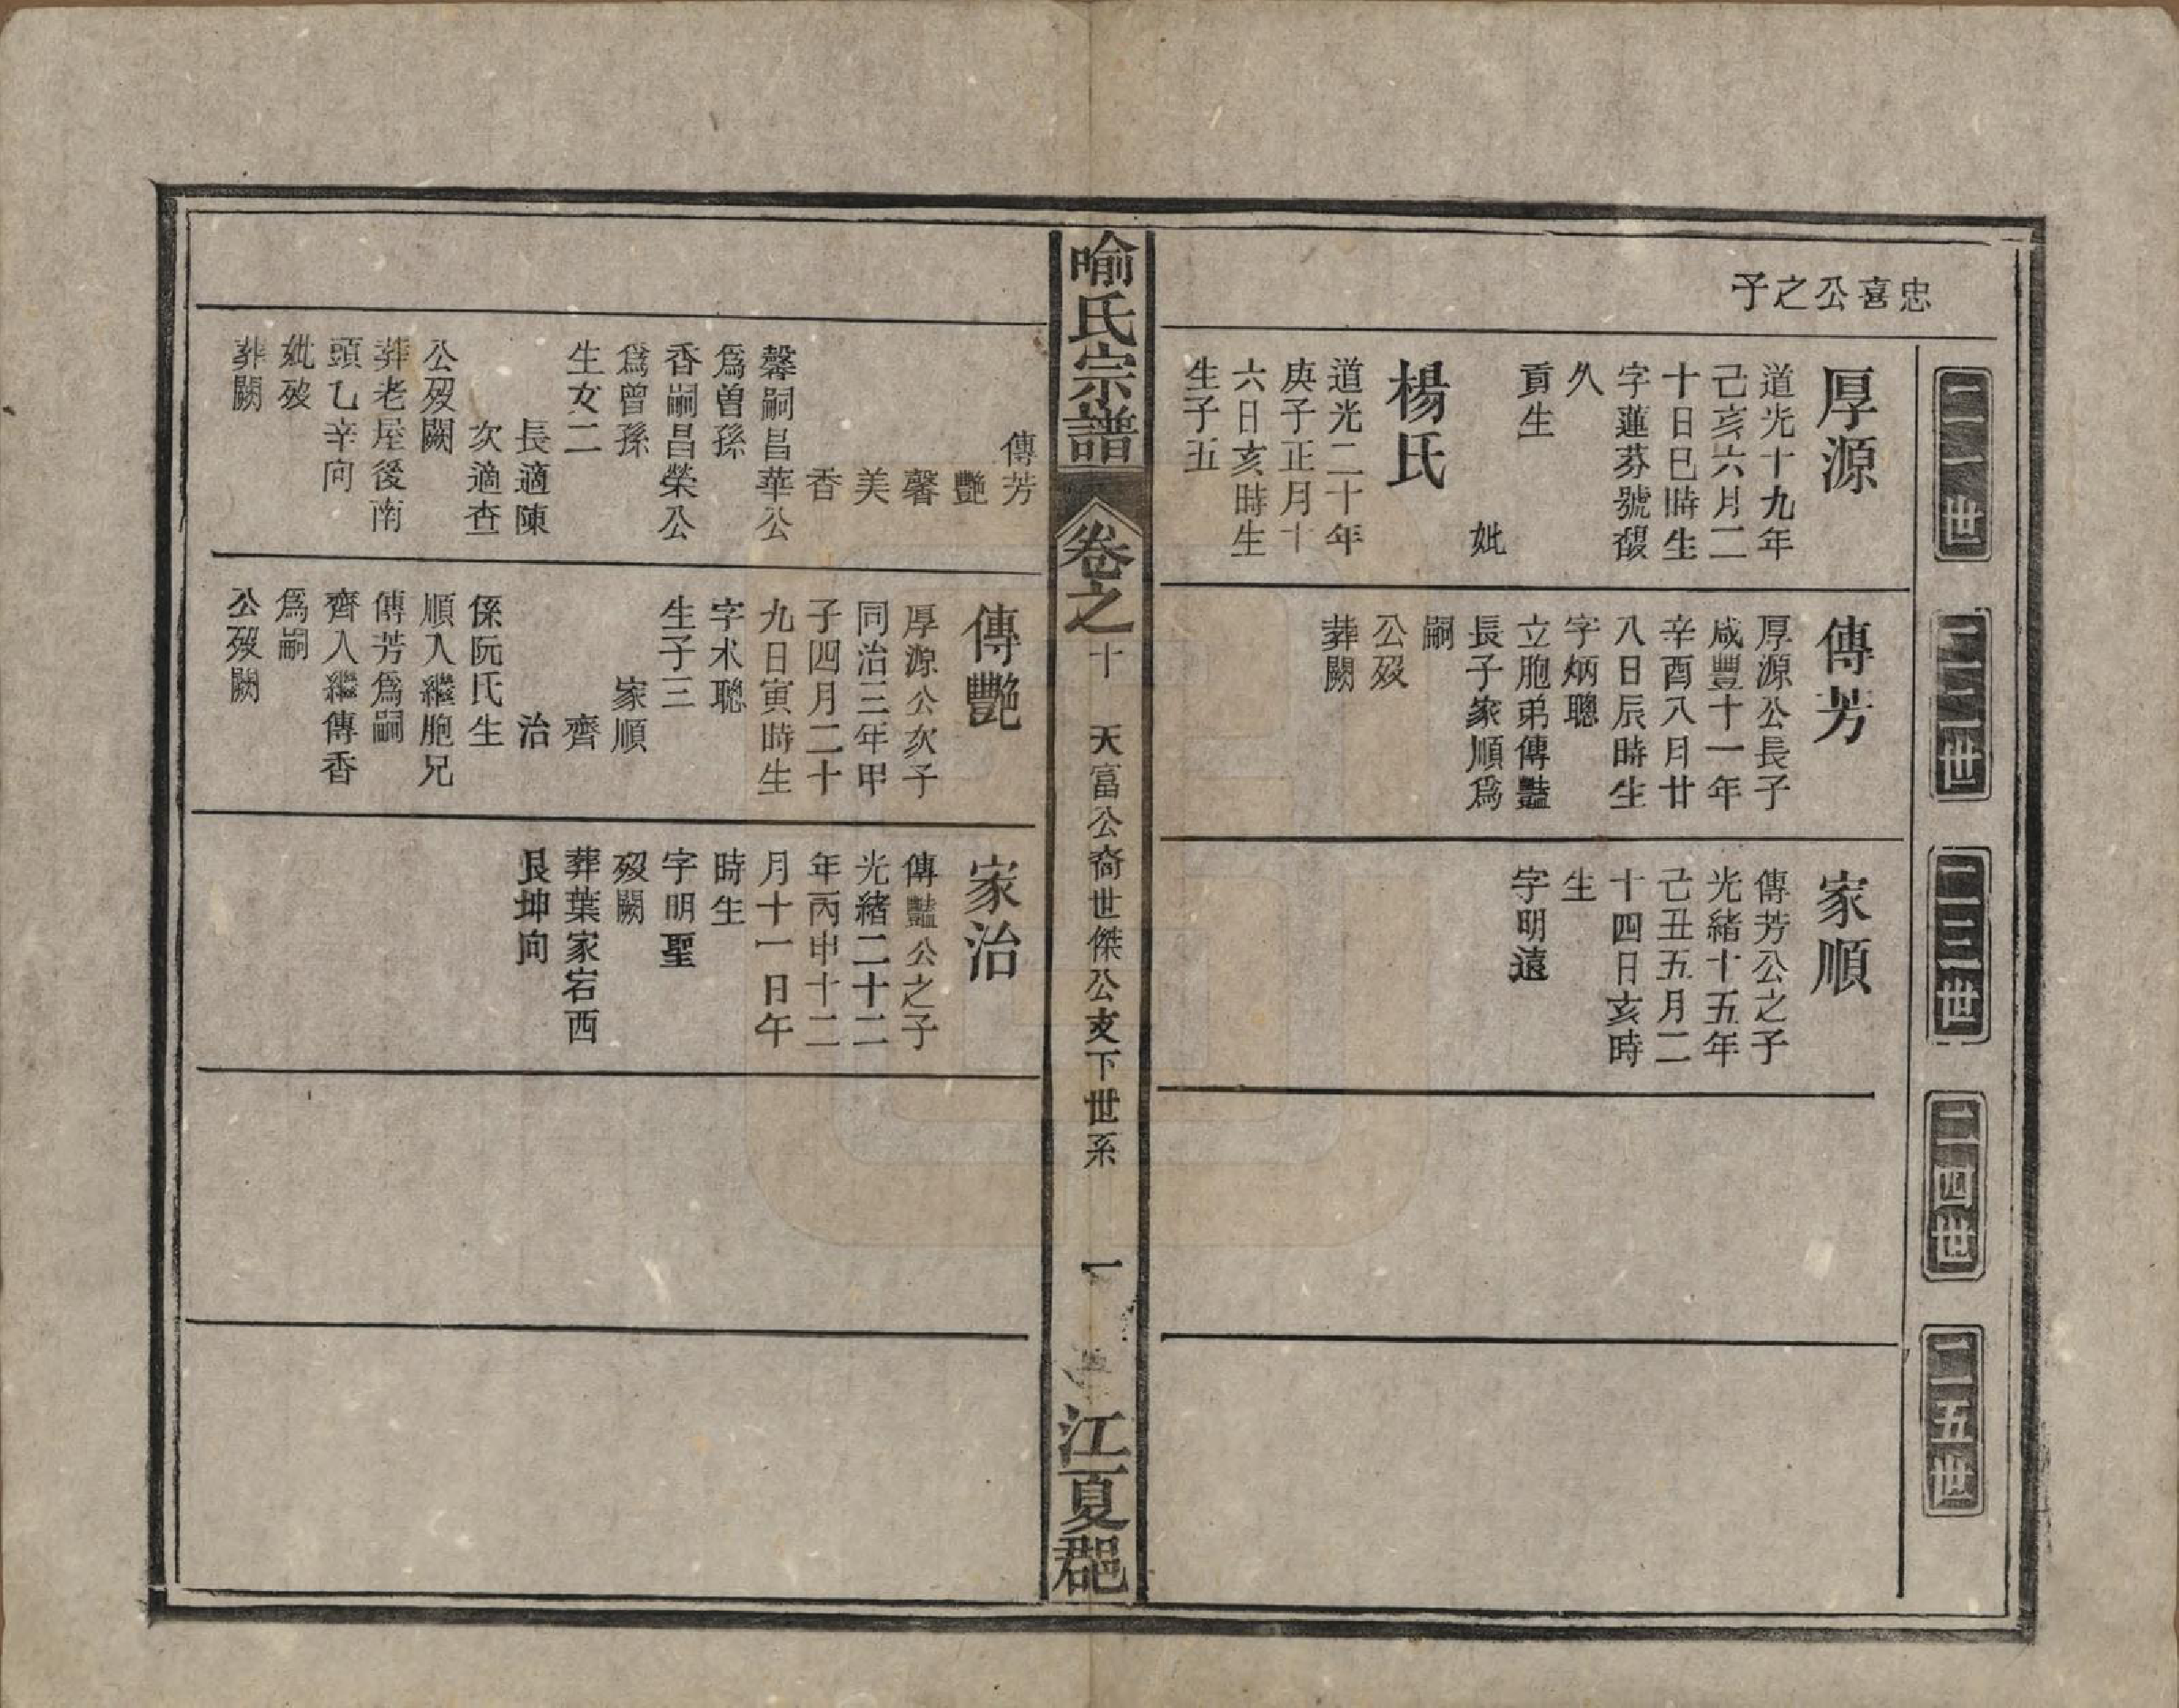 忠喜公之子
二一世
厚源
道光十九年
己亥六月二
十日巳時生
字蓮芬號馥
久
貢生
妣
楊氏
道光二十年
庚子正月十
六日亥時生
生子五
二二世
傳芳
厚源公長子
咸豐十一年
辛酉八月廿
八日辰時生
字炳聰
立胞弟傳豔
長子家順爲
嗣
公歿
葬闕
二三世
家順
傳芳公之子
光緒十五年
己丑五月二
十四日亥時
生
字明遠
二四世
二五世
喻氏宗譜
卷之十
天富公裔世傑公支下世系
一
江夏郡
傳芳
艷
馨
美
香
馨嗣昌華公
爲曾孫
香嗣昌榮公
爲曾孫
生女二
長適陳
次適查
公歿闕
葬老屋後南
頭乙辛向
妣歿
葬闕
傳艷
厚源公次子
同治三年甲
子四月二十
九日寅時生
字术聰
生子三
家順
齊
治
係阮氏生
順入繼胞兄
傳芳爲嗣
齊入繼傳香
爲嗣
公歿闕
家治
傳豔公之子
光緒二十二
年丙申十二
月十一日午
時生
字明聖
歿闕
葬葉家宕西
艮坤向